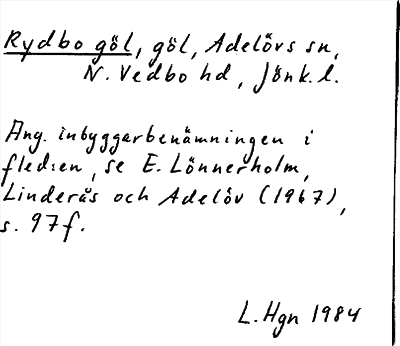 Rydbo göl, göl, Adelövs sn,
N. Vedbo hd, Jönk. l.
Ang. inbyggarbenämningen i
fledsen, se E. Lönnerholm,
Linderås och Adelöv (1967),
s. 97f.
L. Hgn 1984